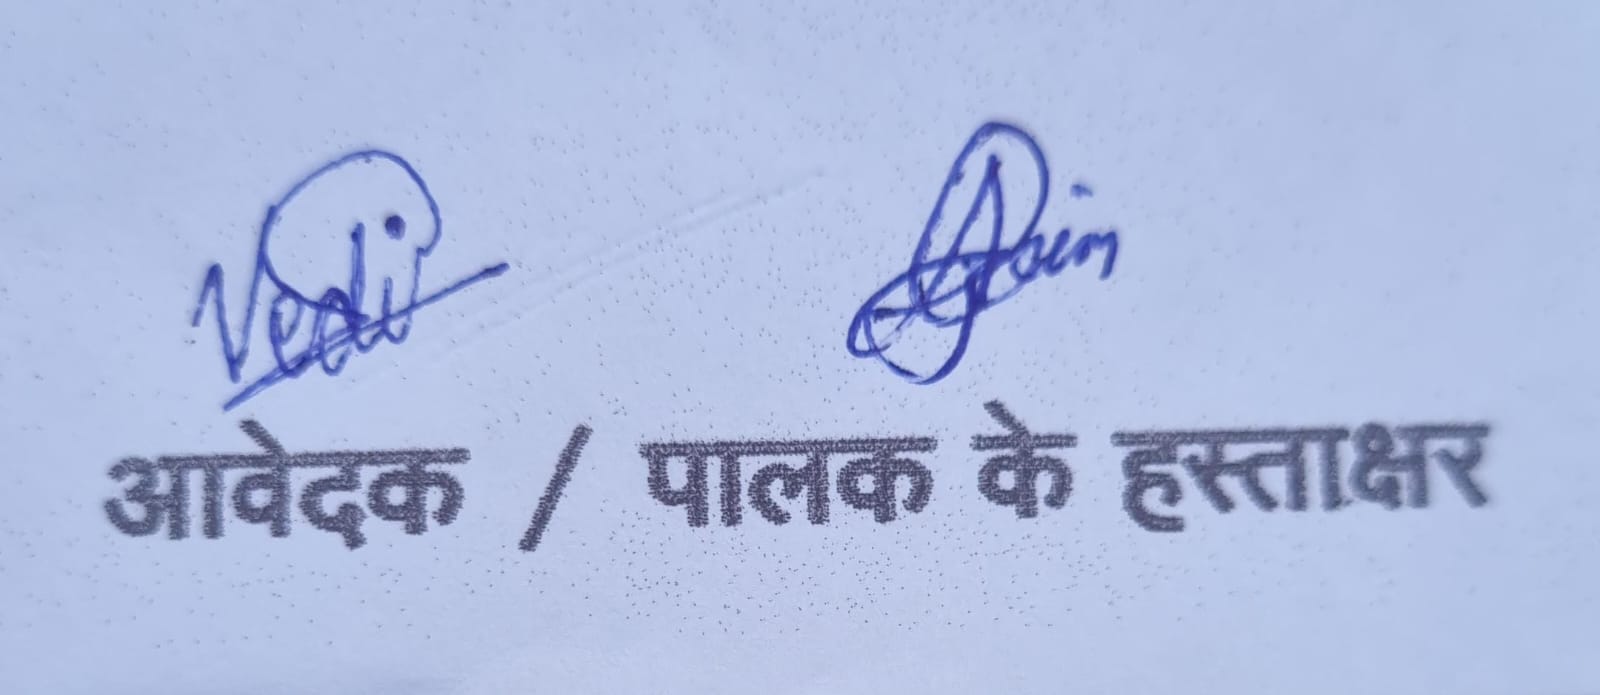 Vedi
आवेदक / पालक के हस्ताक्षर